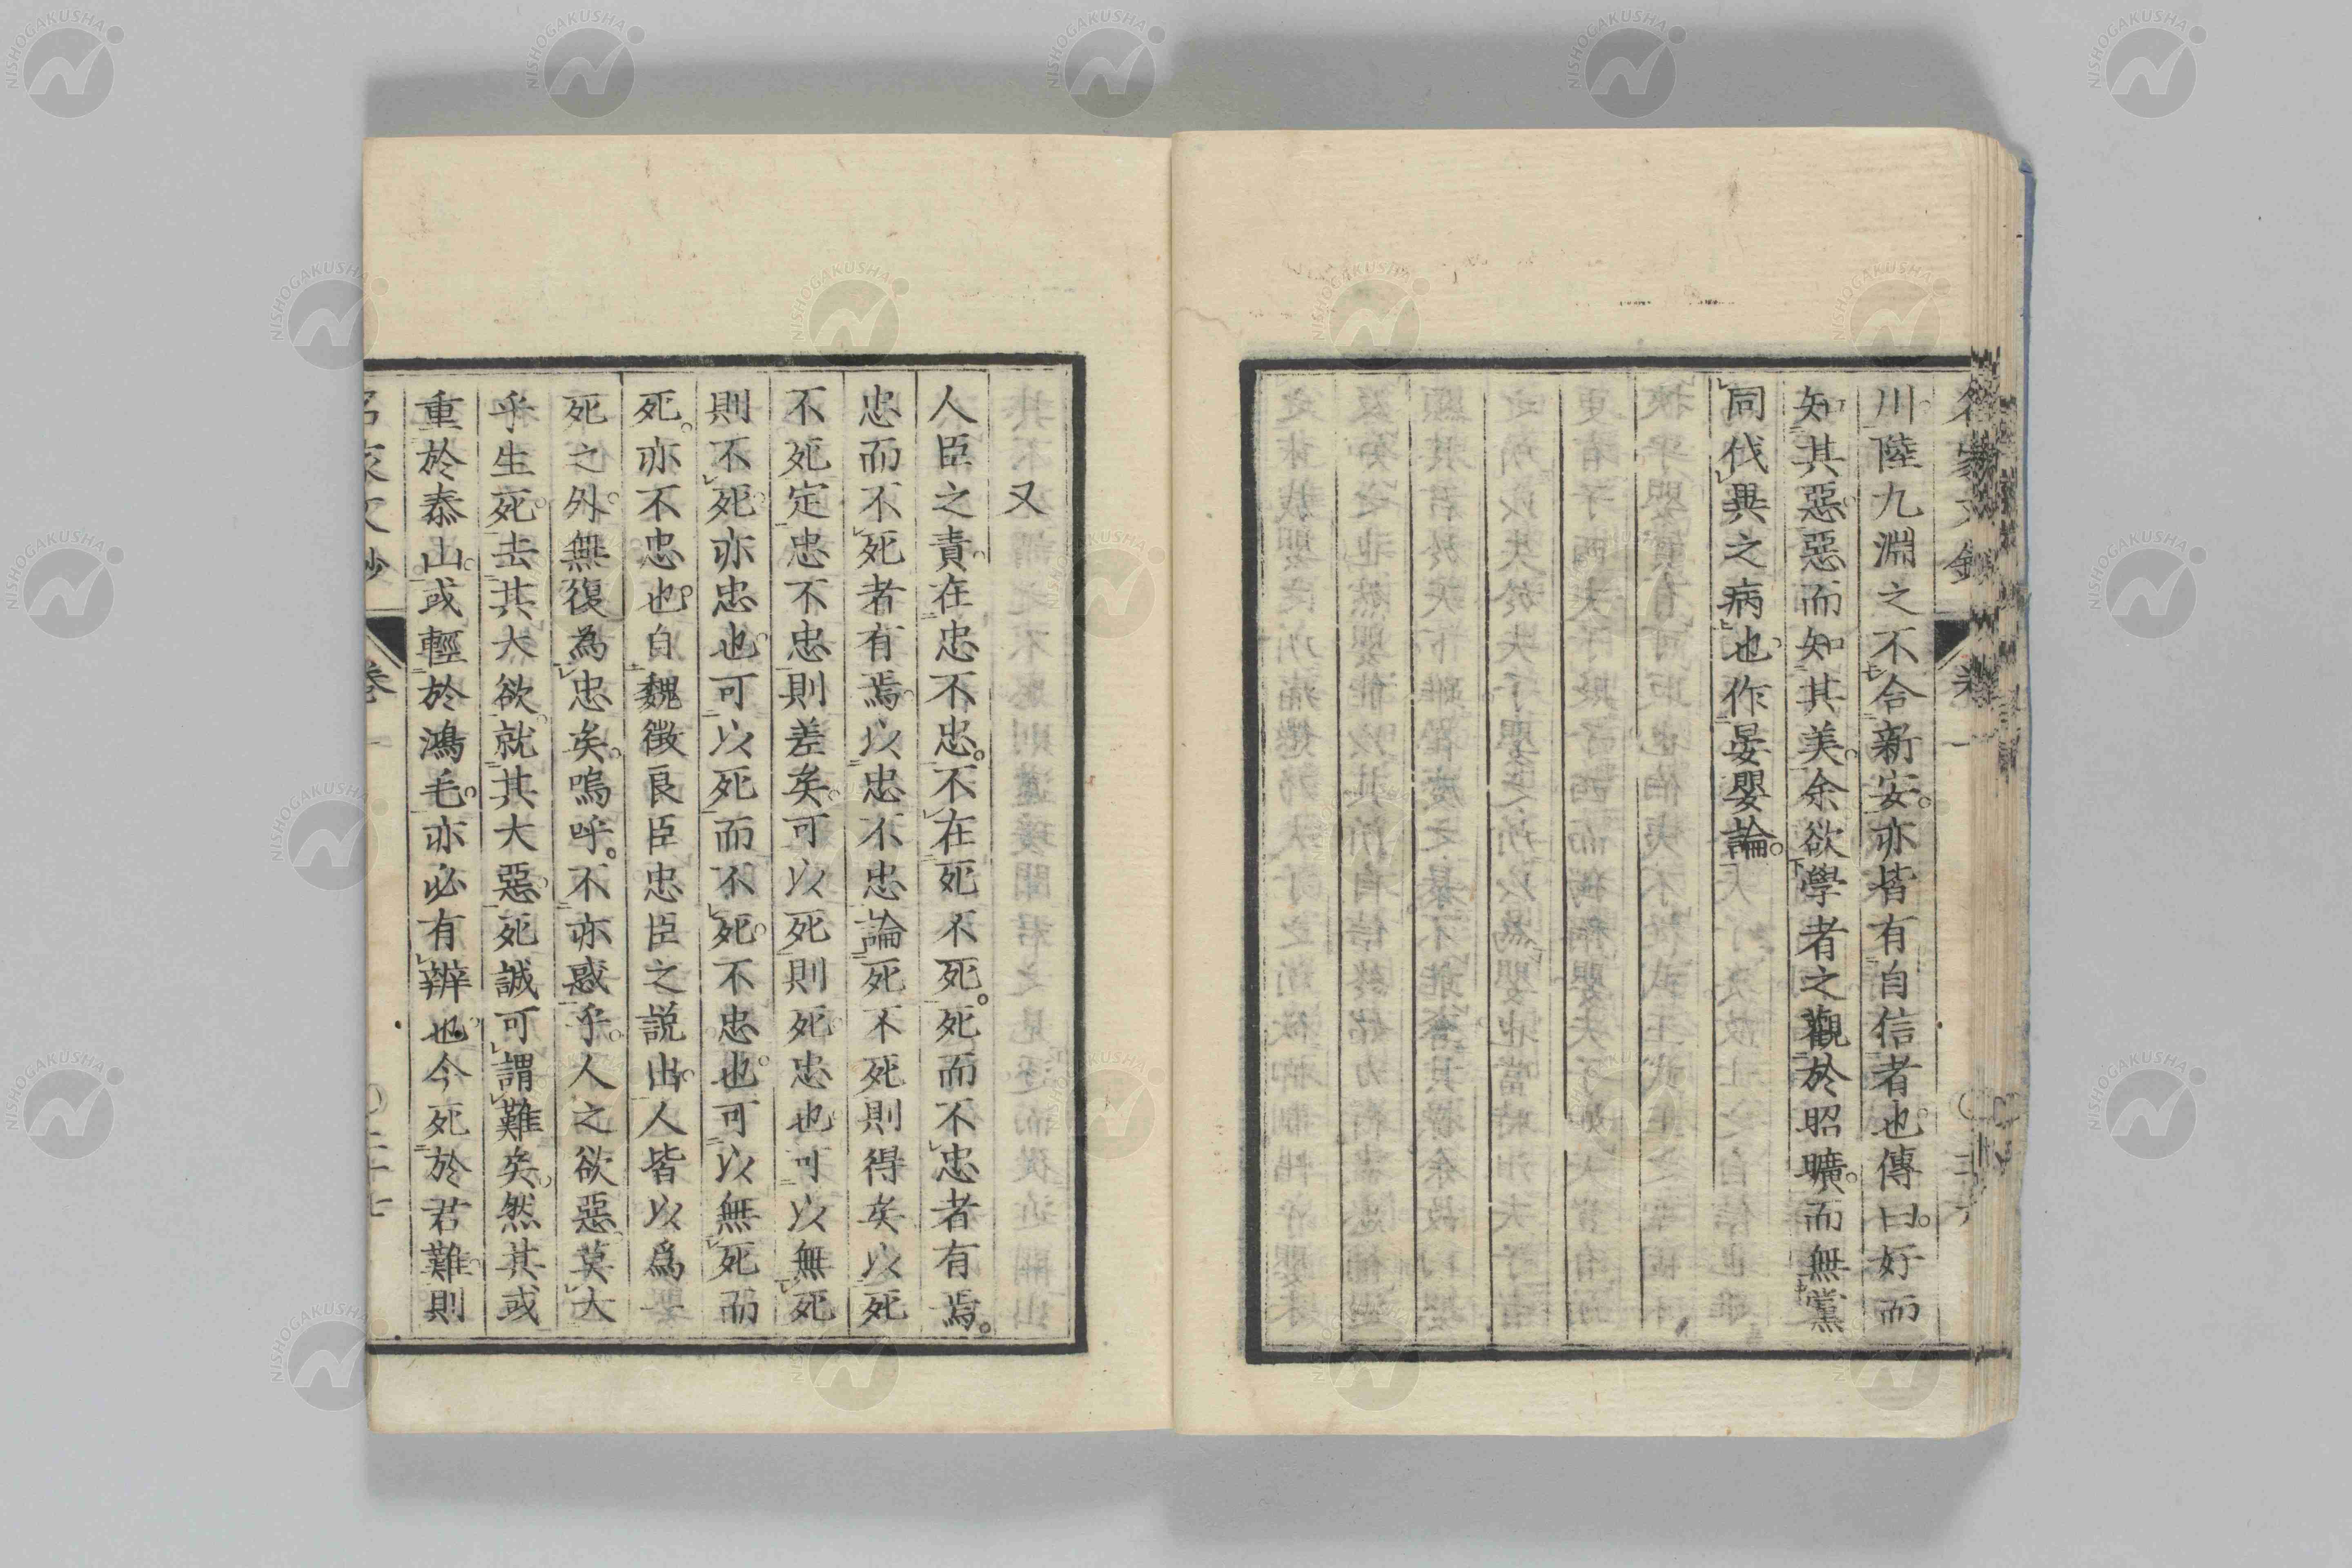 川陸九淵之不合新安。亦皆有自信者也。傳曰。好而
知其惡。惡而知其美。余欲學者之觀於昭曠。而無黨
同伐異之病也。作晏嬰論。
又
人臣之責。在忠不忠。不在死不死。死而不忠者有焉。
忠而不死者有焉。以忠不忠論死不死則得矣。以死
不死定忠不忠則差矣。可以死則死。忠也。可以無死
則不死。亦忠也。可以死而不死。不忠也。可以無死而
死。亦不忠也。自魏徵良臣忠臣之說出。人皆以爲
死之外。無復為忠矣。嗚呼。不亦惑乎。人之欲惡。莫大
乎生死。去其大欲。就其大惡。死誠可謂難矣。然其或
重於泰山。或輕於鴻毛。亦必有辨也。今死於君難。則
名家文鈔
卷一
NISHOGAKUSHA